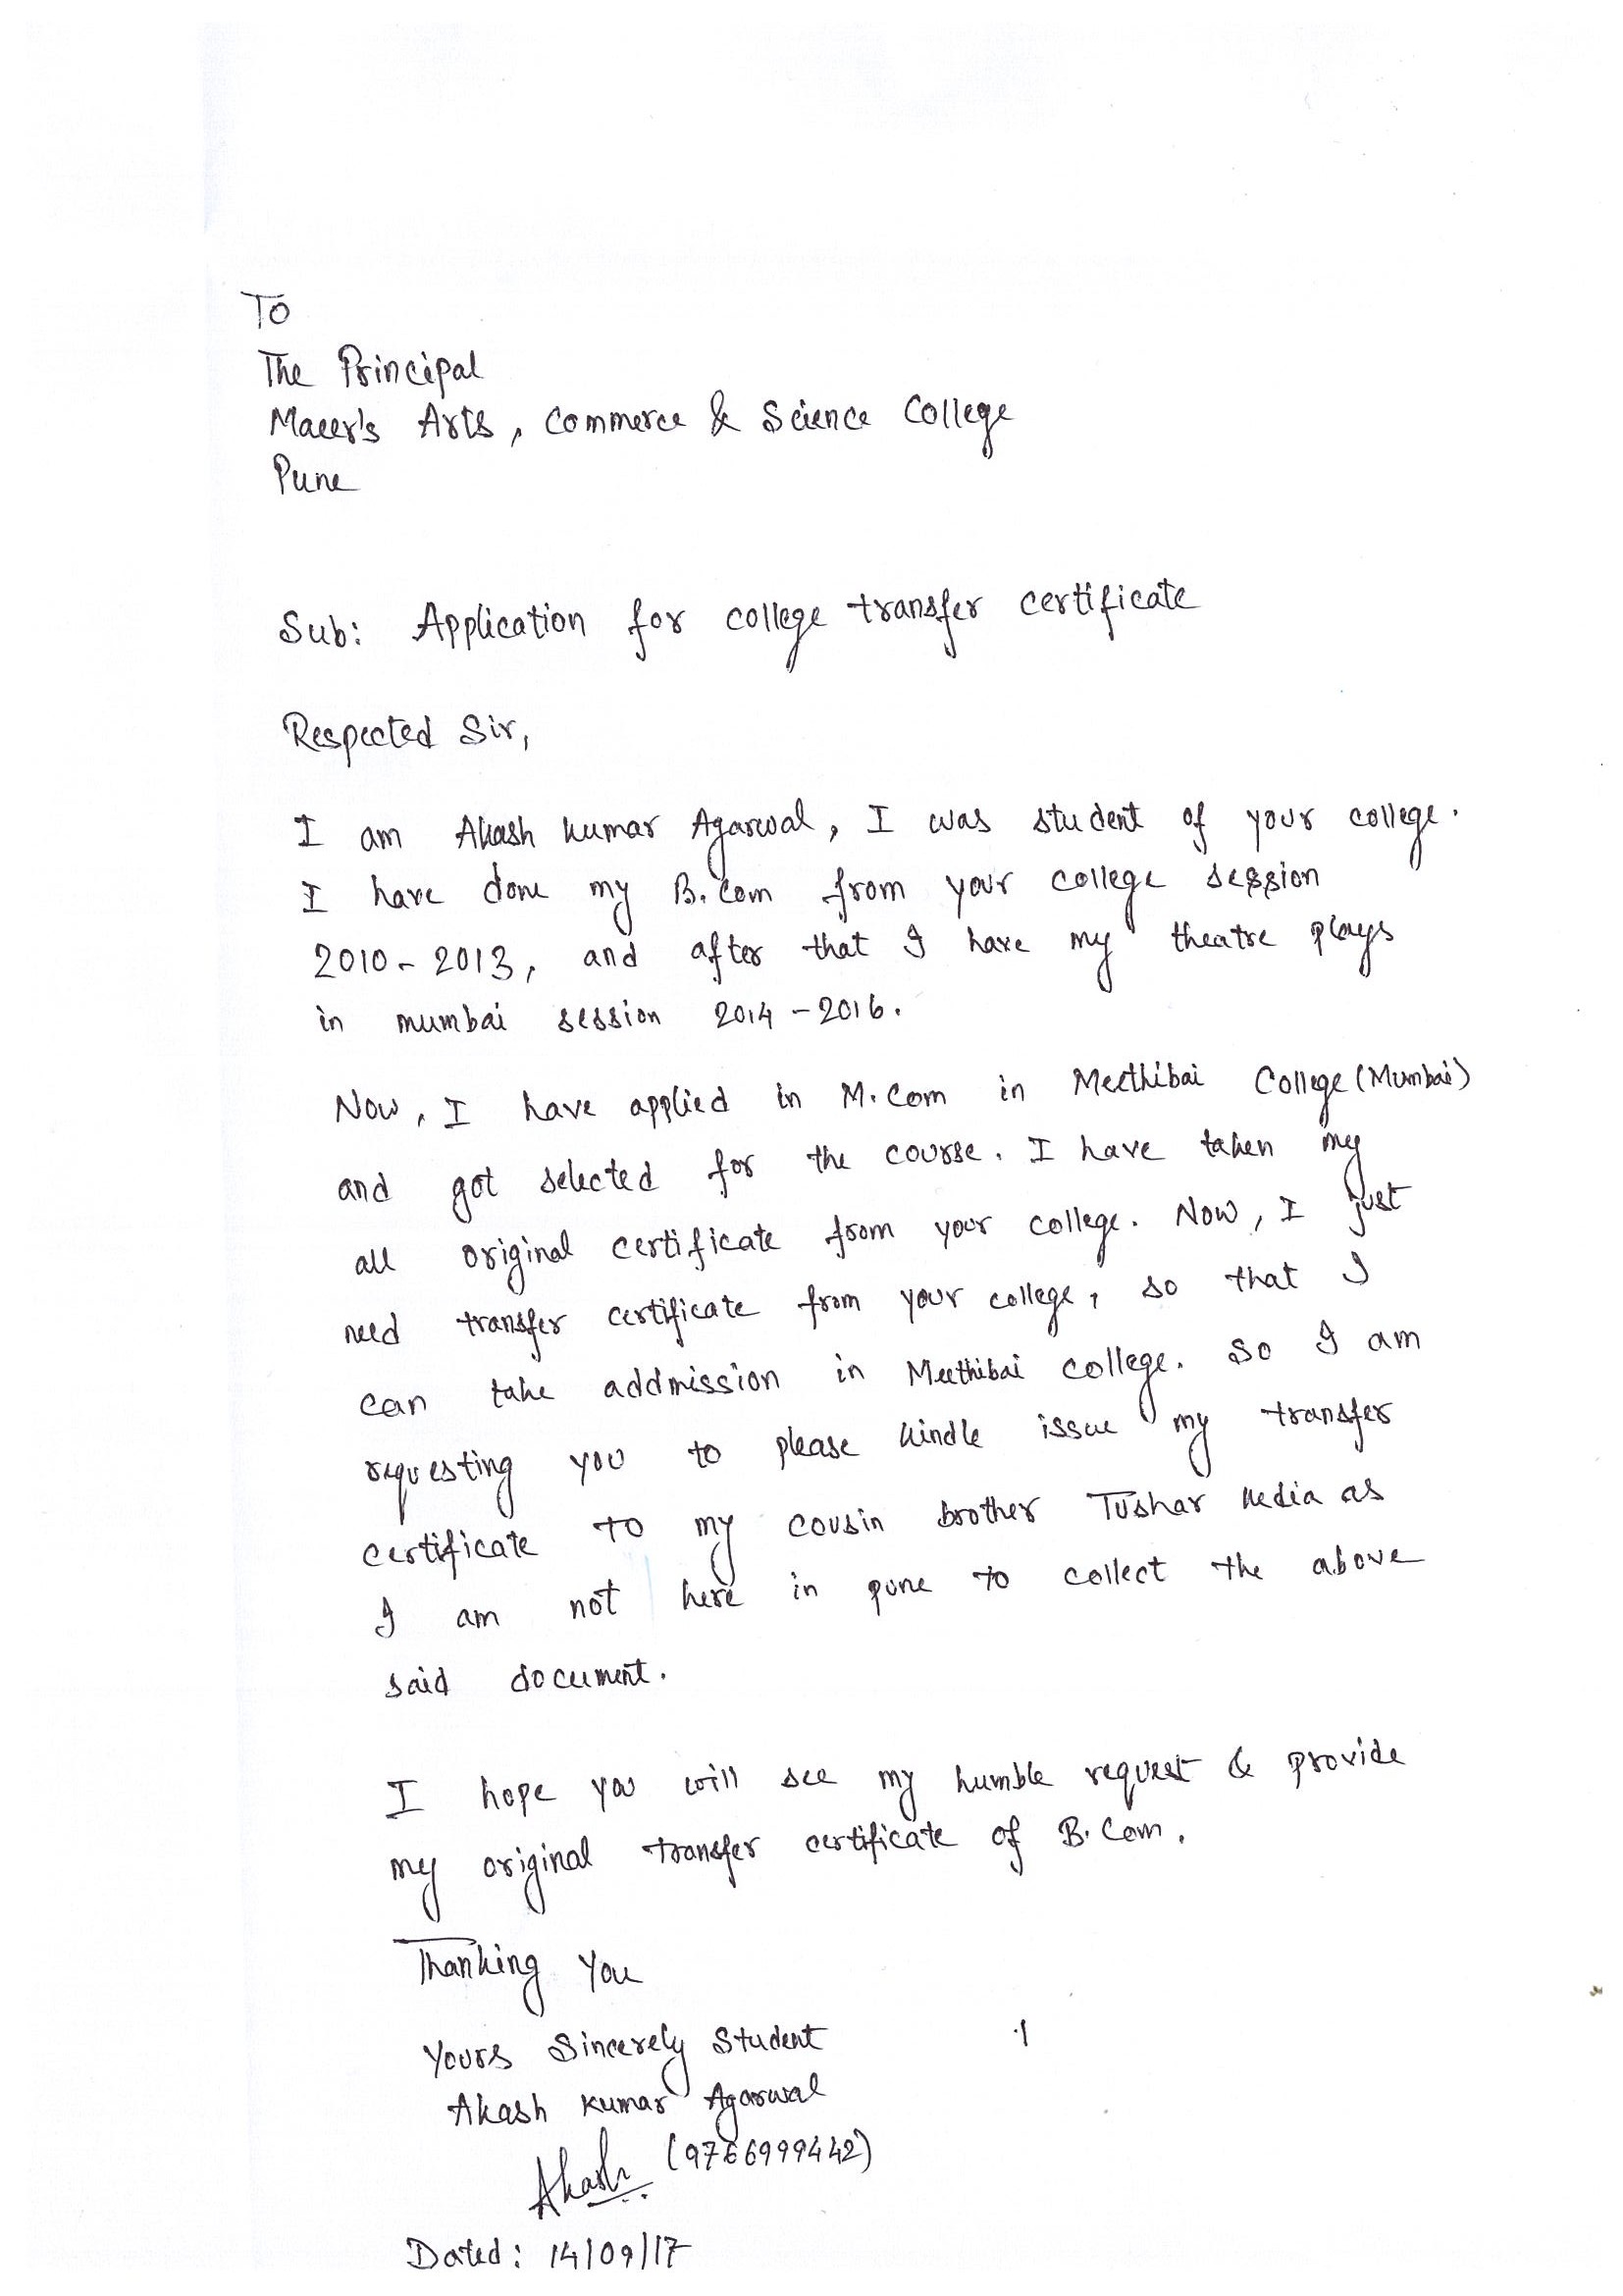 To
The Principal
Maeer's Arts, Commerce & Science College
Pune
Sub: Application for college transfer certificate
Respected Sir,
I am Akash kumar Agarwal, I was student of your college.
I have done my B.Com from your college session
2010-2013, and after that I have my theatre plays
in mumbai session 2014-2016.
Now, I have applied in M.Com in Meethibai College (Mumbai)
and got selected for the course. I have taken my
all original certificate from your college. Now, I just
need transfer certificate from your college, so that I
can take addmission in Meethibai college. So I am
requesting you to please kindle issue my transfer
certificate to my cousin brother Tushar kedia as
I am not here in pune to collect the above
said document.
I hope you will see my humble request & provide
my original transfer certificate of B.Com.
Thanking You
Yours Sincerely Student
Akash Kumar Agarwal
Akash (9766999442)
Dated: 14/09/17